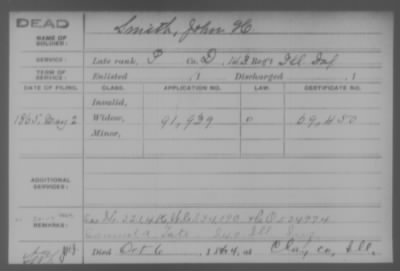 DEAD
Smith, John H.
NAME OF SOLDIER:
SERVICE: Late rank, P Co. D, 143 Reg't Ill. Inf
TERM OF SERVICE: Enlisted , 1 Discharged , 1
DATE OF FILING. CLASS. APPLICATION NO. LAW. CERTIFICATE NO.
Invalid,
1865. May 2 Widow, 91,929 69,450
Minor,
ADDITIONAL SERVICES:
REMARKS:
Tate Ill
Died Oct 6, 1864, at Clay co, Ill.